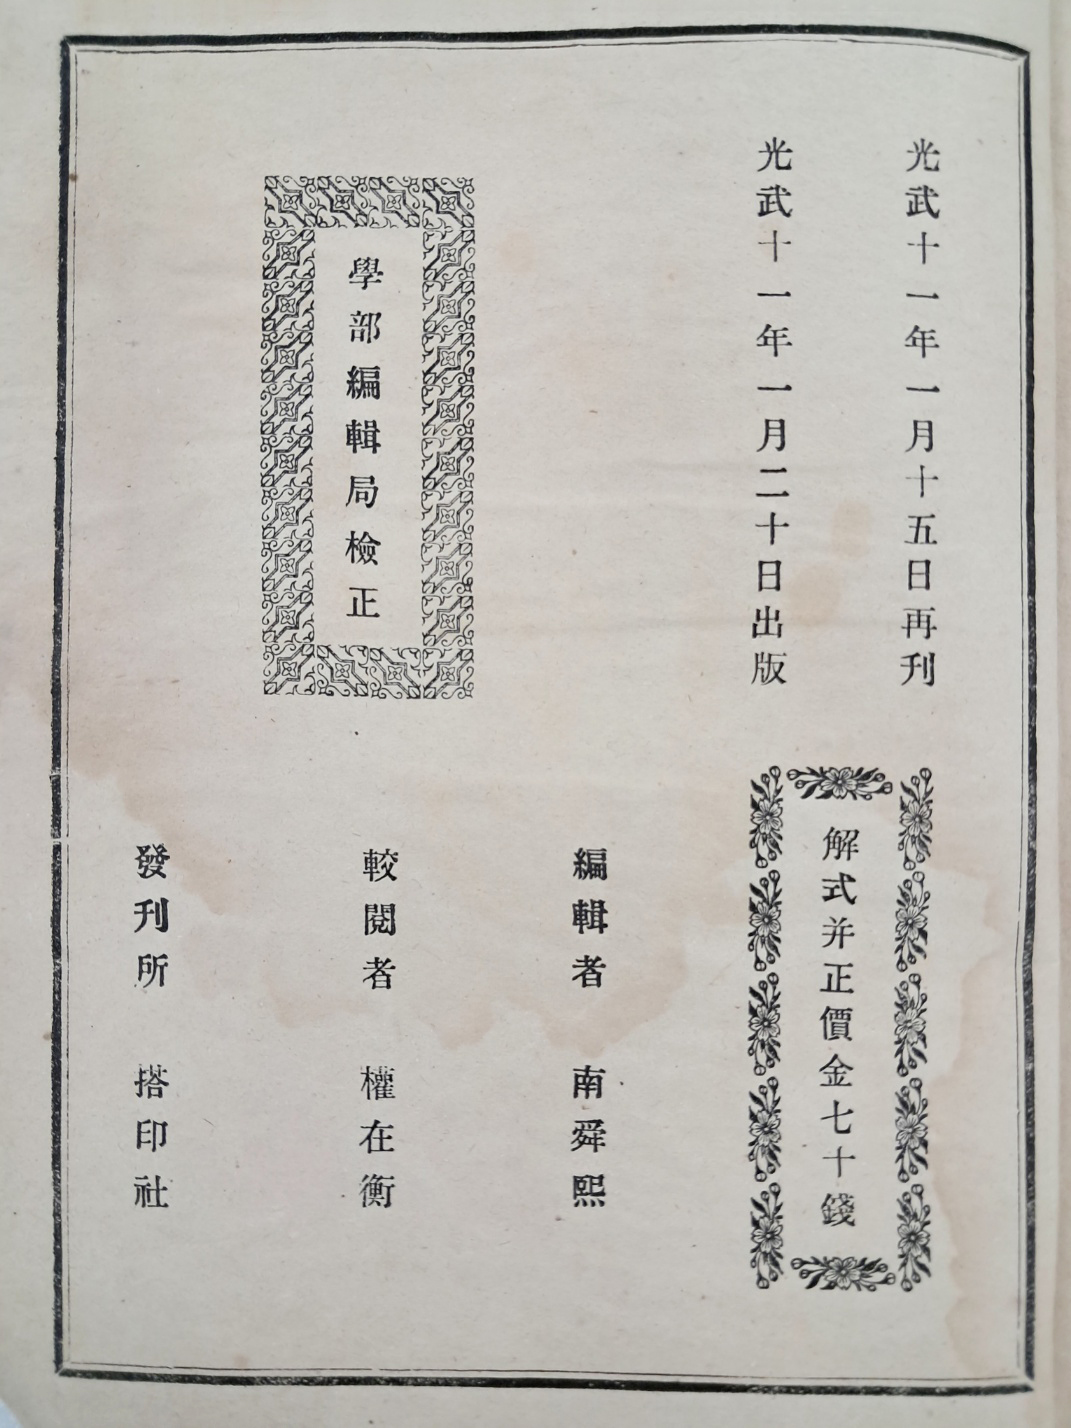 光武十一年一月十五日再刊
光武十一年一月二十日出版
解式并正價金七十錢
學部編輯局檢正
編輯者 南舜熙
較閱者 權在衡
發刊所 搭印社